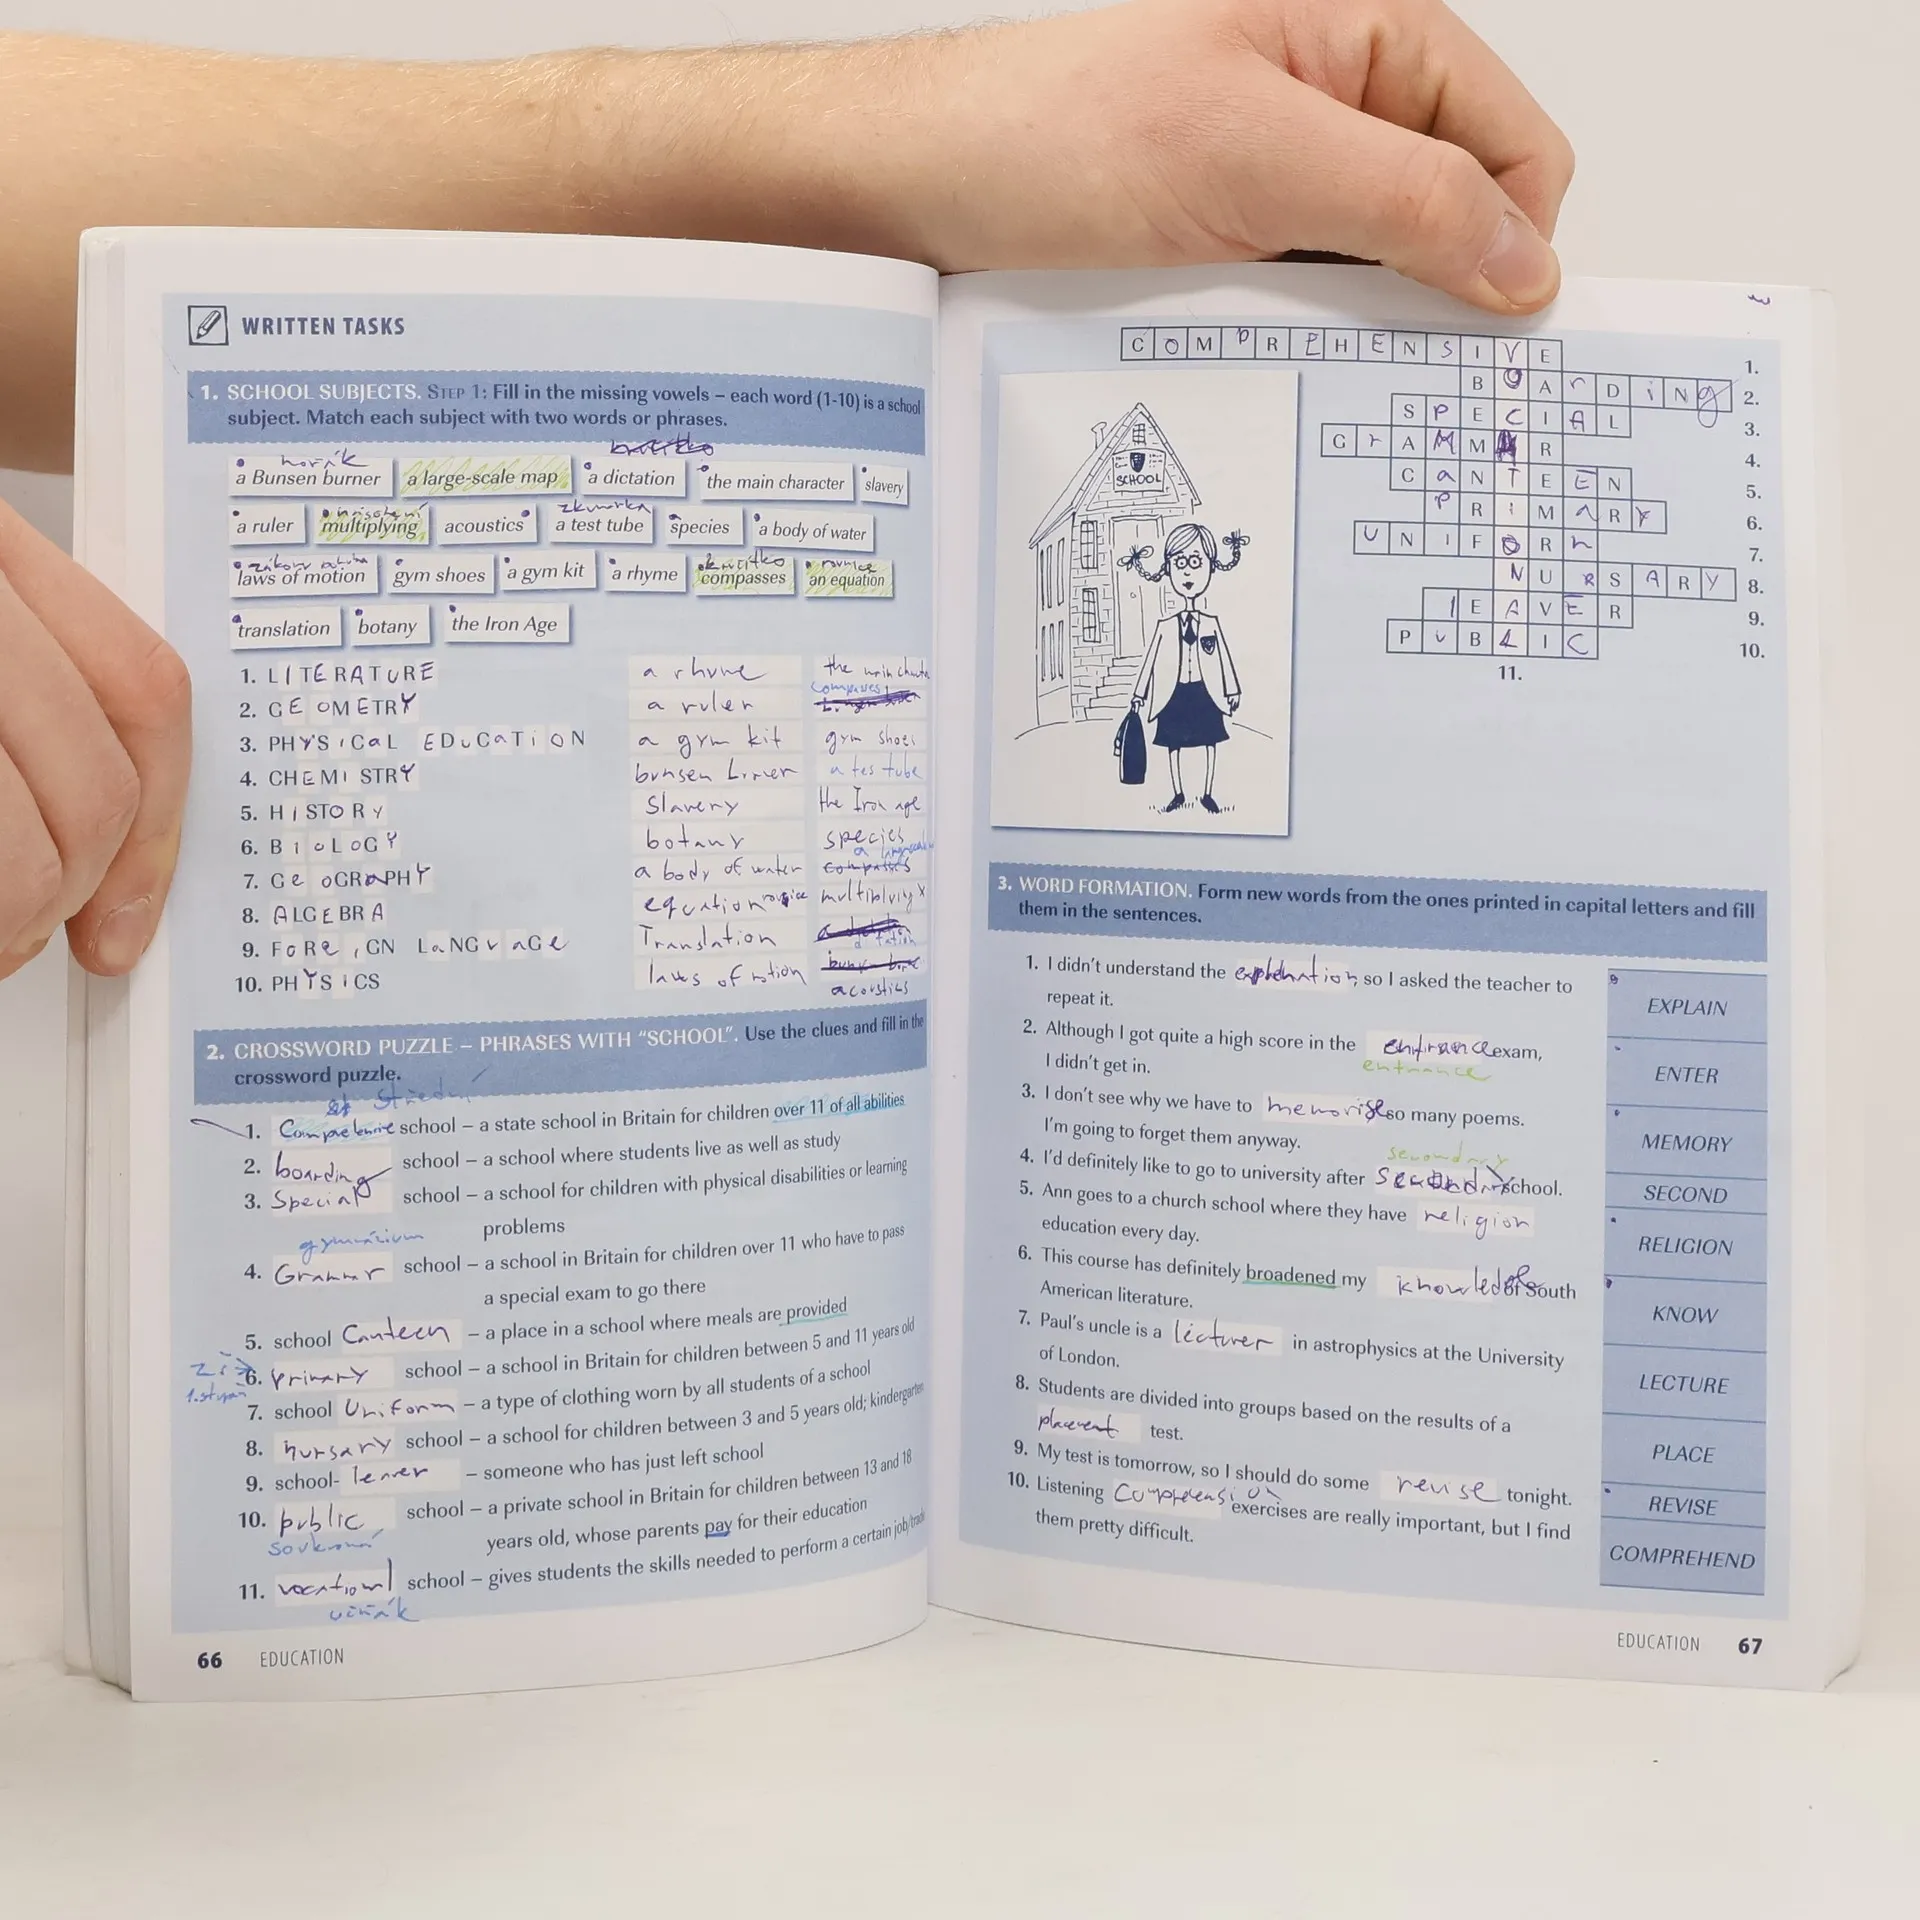 WRITTEN TASKS
1. SCHOOL SUBJECTS. STEP 1: Fill in the missing vowels – each word (1-10) is a school
subject. Match each subject with two words or phrases.
horák
a Bunsen burner a large-scale map a dictation the main character slavery
zkumavka
a ruler multiplying acoustics a test tube species a body of water
kružítko rovnice
laws of motion gym shoes a gym kit a rhyme compasses an equation
translation botany the Iron Age
1. LITERATURE a rhyme the main
compasses
2. GEOMETRY a ruler
3. PHYSICAL EDUCATION a gym kit gym shoes
4. CHEMISTRY bunsen a tes tube
5. HISTORY Slavery the Iron age
6. BIOLOGY botany species
7. GeOGRAPHY a body of water compasses
8. ALGEBRA equation rovnice multiplying x
9. FOReIGN LaNGuaGe Translation
10. PHYSICS laws of motion
acoustics
2. CROSSWORD PUZZLE – PHRASES WITH "SCHOOL". Use the clues and fill in the
crossword puzzle.
1. school – a state school in Britain for children over 11 of all abilities
2. boarding school – a school where students live as well as study
3. Special school – a school for children with physical disabilities or learning
problems
gymnázium
4. Grammar school – a school in Britain for children over 11 who have to pass
a special exam to go there
5. school Canteen – a place in a school where meals are provided
6. primary school – a school in Britain for children between 5 and 11 years old
7. school Uniform – a type of clothing worn by all students of a school
8. nursary school – a school for children between 3 and 5 years old; kindergarten
9. school- leaver – someone who has just left school
10. public school – a private school in Britain for children between 13 and 18
years old, whose parents pay for their education
11. school – gives students the skills needed to perform a certain job/trade
66 EDUCATION
COMPREHENSIVE 1.
BOArDiNg 2.
SPECIAL 3.
GrAMMAR 4.
CaNTEEN 5.
PRiMaRY 6.
UNIFORM 7.
NURSARY 8.
lEAVER 9.
PuBLIC 10.
11.
SCHOOL
3. WORD FORMATION. Form new words from the ones printed in capital letters and fill
them in the sentences.
1. I didn't understand the so I asked the teacher to
repeat it.
EXPLAIN
2. Although I got quite a high score in the entrance exam,
I didn't get in. entrance
ENTER
3. I don't see why we have to memorise so many poems.
I'm going to forget them anyway.
MEMORY
secondary
4. I'd definitely like to go to university after secondary school.
SECOND
5. Ann goes to a church school where they have religion
education every day.
RELIGION
6. This course has definitely broadened my knowledge of South
American literature.
KNOW
7. Paul's uncle is a lecturer in astrophysics at the University
of London.
LECTURE
8. Students are divided into groups based on the results of a
test.
PLACE
9. My test is tomorrow, so I should do some revise tonight.
REVISE
10. Listening Comprehension exercises are really important, but I find
them pretty difficult.
COMPREHEND
EDUCATION 67